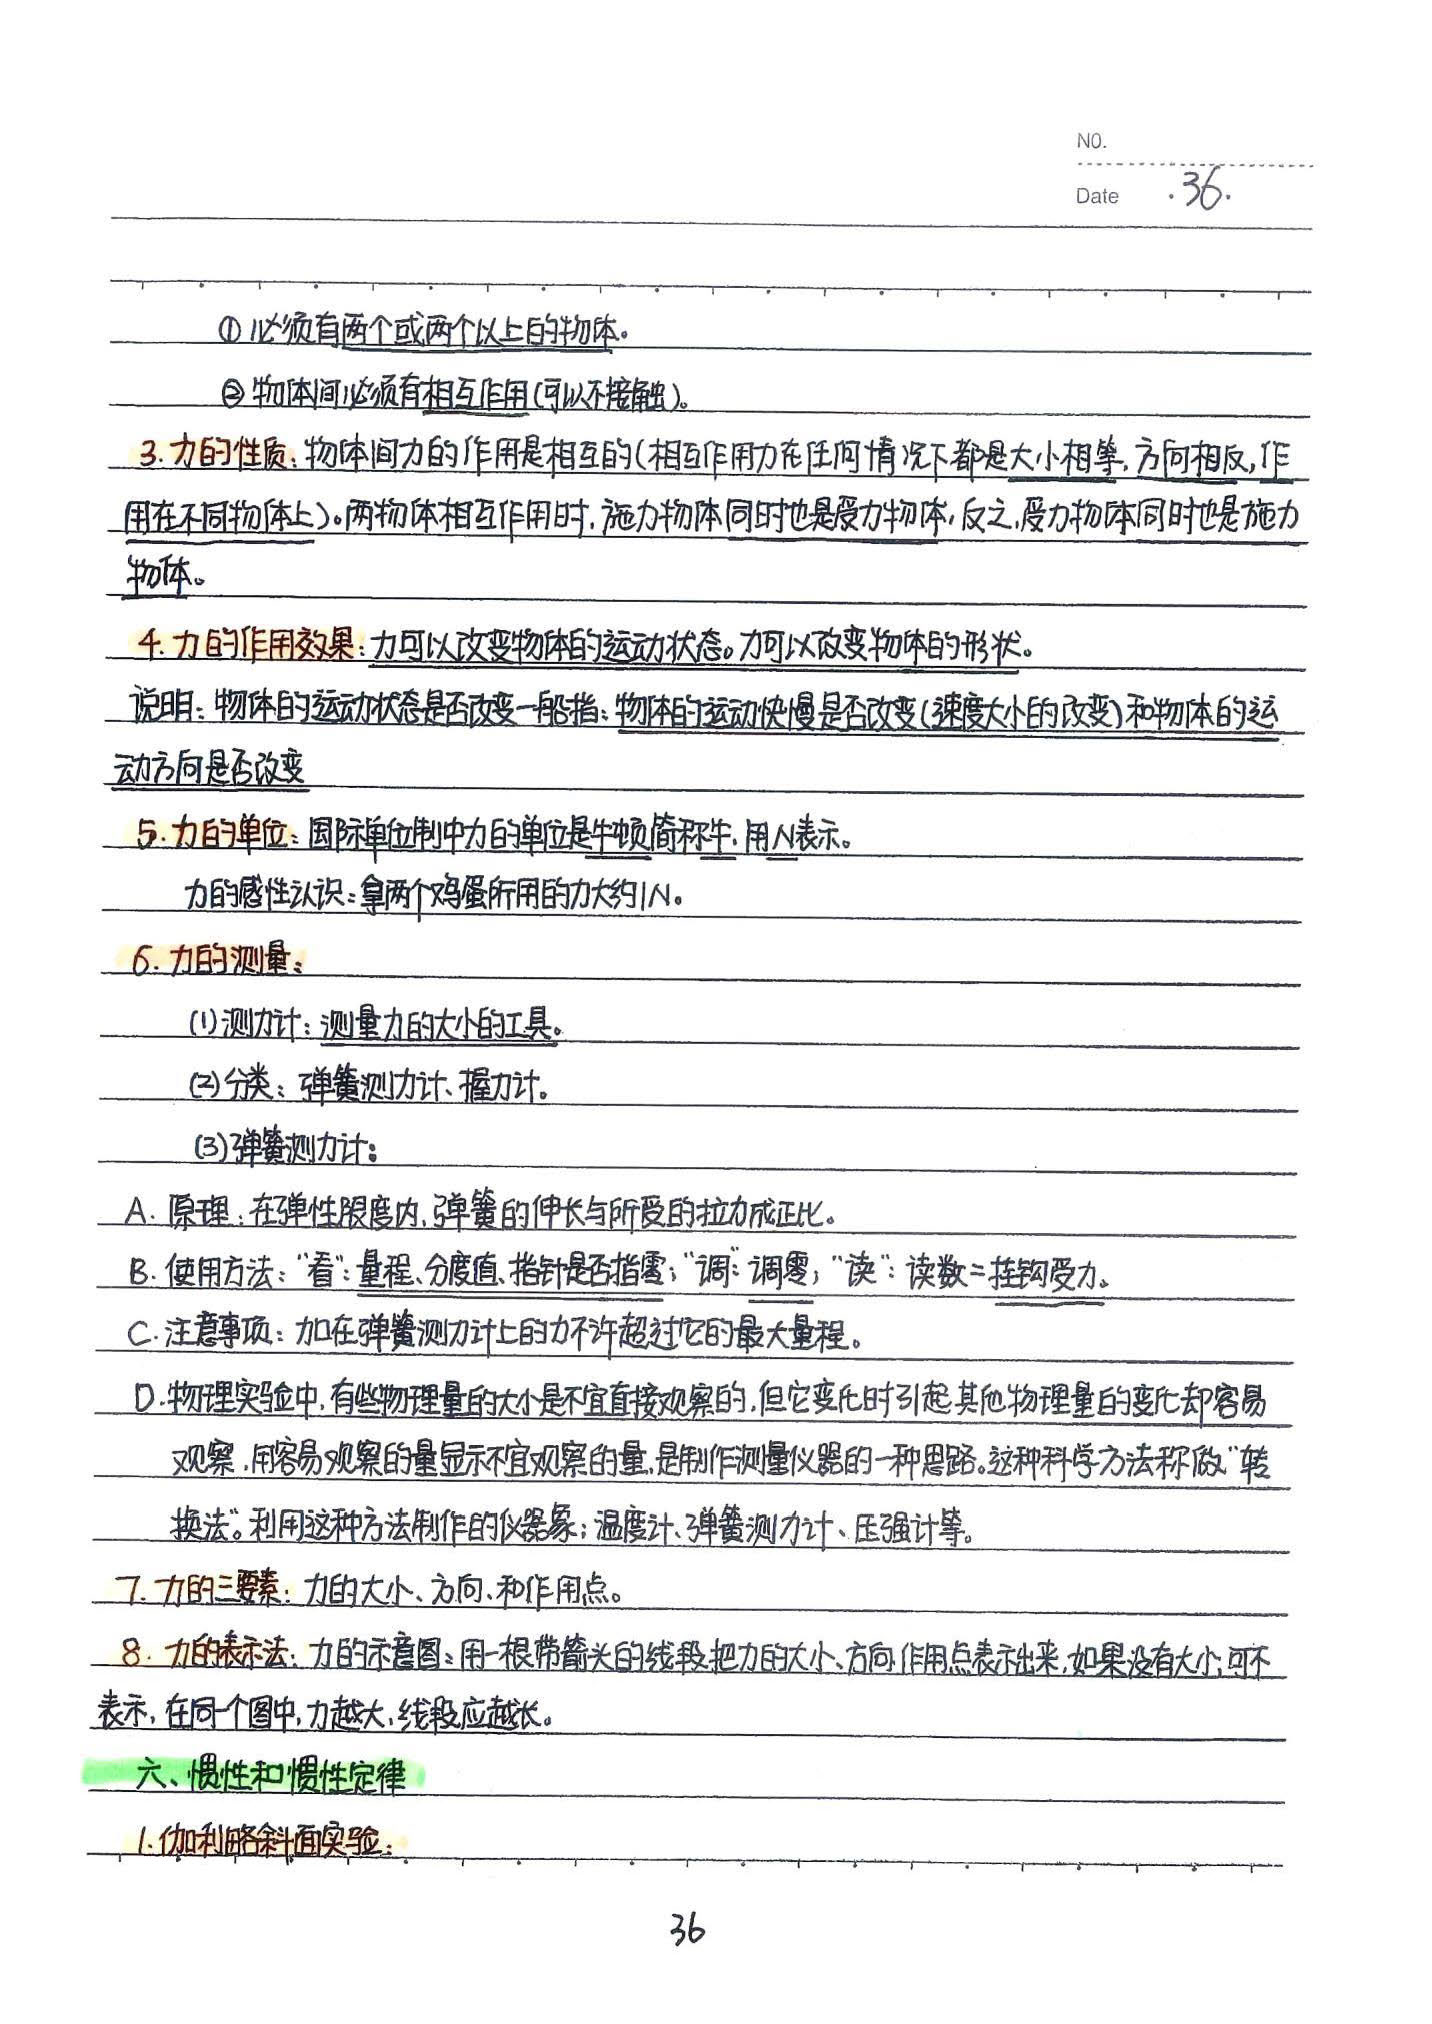 NO.
Date .36.
① 必须有两个或两个以上的物体。
② 物体间必须有相互作用(可以不接触)。
3.力的性质:物体间力的作用是相互的(相互作用力在任何情况下都是大小相等,方向相反,作
用在不同物体上)。两物体相互作用时,施力物体同时也是受力物体,反之,受力物体同时也是施力
物体。
4.力的作用效果:力可以改变物体的运动状态。力可以改变物体的形状。
说明:物体的运动状态是否改变一般指:物体的运动快慢是否改变(速度大小的改变)和物体的运
动方向是否改变
5.力的单位:国际单位制中力的单位是牛顿简称牛,用N表示。
力的感性认识:拿两个鸡蛋所用的力大约1N。
6.力的测量:
(1)测力计:测量力的大小的工具。
(2)分类:弹簧测力计、握力计。
(3)弹簧测力计:
A.原理:在弹性限度内,弹簧的伸长与所受的拉力成正比。
B.使用方法:"看":量程、分度值、指针是否指零;"调":调零;"读":读数=挂钩受力。
C.注意事项:加在弹簧测力计上的力不许超过它的最大量程。
D.物理实验中,有些物理量的大小是不宜直接观察的,但它变化时引起其他物理量的变化却容易
观察,用容易观察的量显示不宜观察的量,是制作测量仪器的一种思路。这种科学方法称做"转
换法"。利用这种方法制作的仪器象:温度计、弹簧测力计、压强计等。
7.力的三要素:力的大小、方向、和作用点。
8.力的表示法:力的示意图:用一根带箭头的线段把力的大小、方向,作用点表示出来,如果没有大小,可不
表示,在同一个图中,力越大,线段应越长。
六、惯性和惯性定律
1.伽利略斜面实验:
36